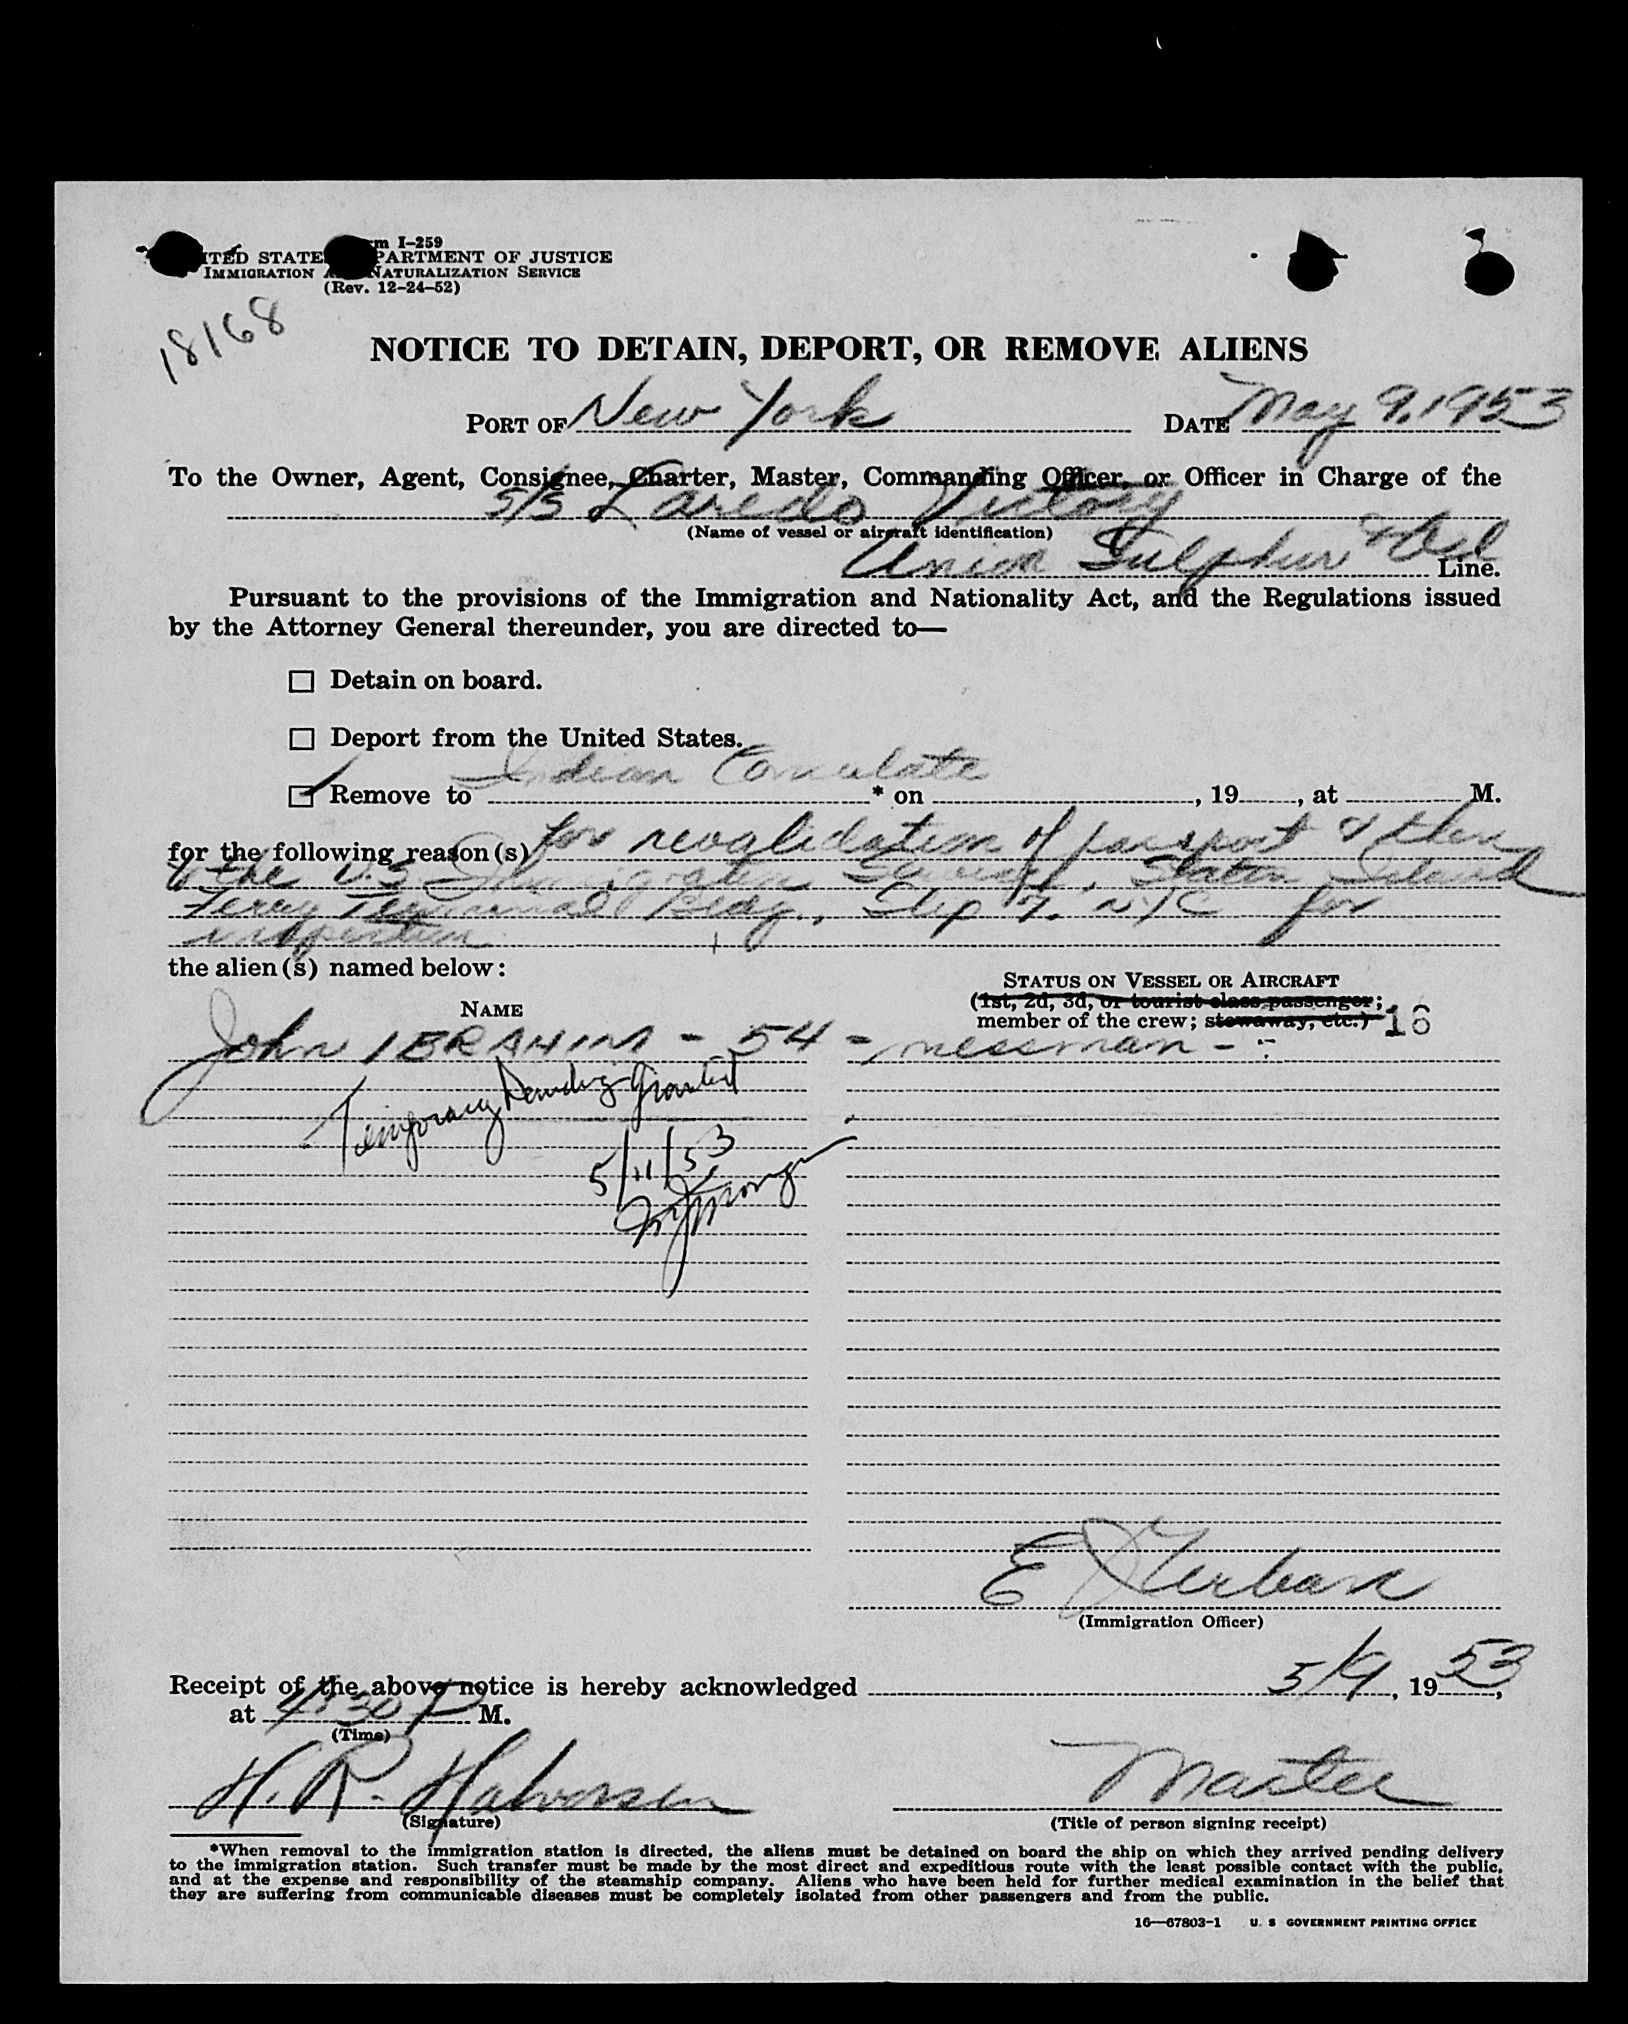 Form I-259
UNITED STATES DEPARTMENT OF JUSTICE
IMMIGRATION AND NATURALIZATION SERVICE
(Rev. 12-24-52)
18168
NOTICE TO DETAIN, DEPORT, OR REMOVE ALIENS
PORT OF New York DATE May 9, 1953
To the Owner, Agent, Consignee, Charter, Master, Commanding Officer, or Officer in Charge of the
S/S Laredo Victory
(Name of vessel or aircraft identification)
Union Sulphur & Oil Line.
Pursuant to the provisions of the Immigration and Nationality Act, and the Regulations issued
by the Attorney General thereunder, you are directed to—
Detain on board.
Deport from the United States.
Remove to Indian Consulate * on , 19 , at M.
for the following reason(s) for revalidation of passport & then
to the U.S. Immigration Service, Staten Island
Ferry Terminal Bldg., Slip 7, NYC for
inspection
the alien(s) named below:
NAME
STATUS ON VESSEL OR AIRCRAFT
(1st, 2d, 3d, or tourist class passenger;
member of the crew; stowaway, etc.) 16
John IBRAHIM - 54 - messman -
Temporary Landing Granted
5/11/53
E Urban
(Immigration Officer)
Receipt of the above notice is hereby acknowledged 5/9, 1953,
at 4:30 P M.
(Time)
H. R. Halvorsen Master
(Signature) (Title of person signing receipt)
*When removal to the immigration station is directed, the aliens must be detained on board the ship on which they arrived pending delivery
to the immigration station. Such transfer must be made by the most direct and expeditious route with the least possible contact with the public,
and at the expense and responsibility of the steamship company. Aliens who have been held for further medical examination in the belief that
they are suffering from communicable diseases must be completely isolated from other passengers and from the public.
16—67803-1 U. S GOVERNMENT PRINTING OFFICE